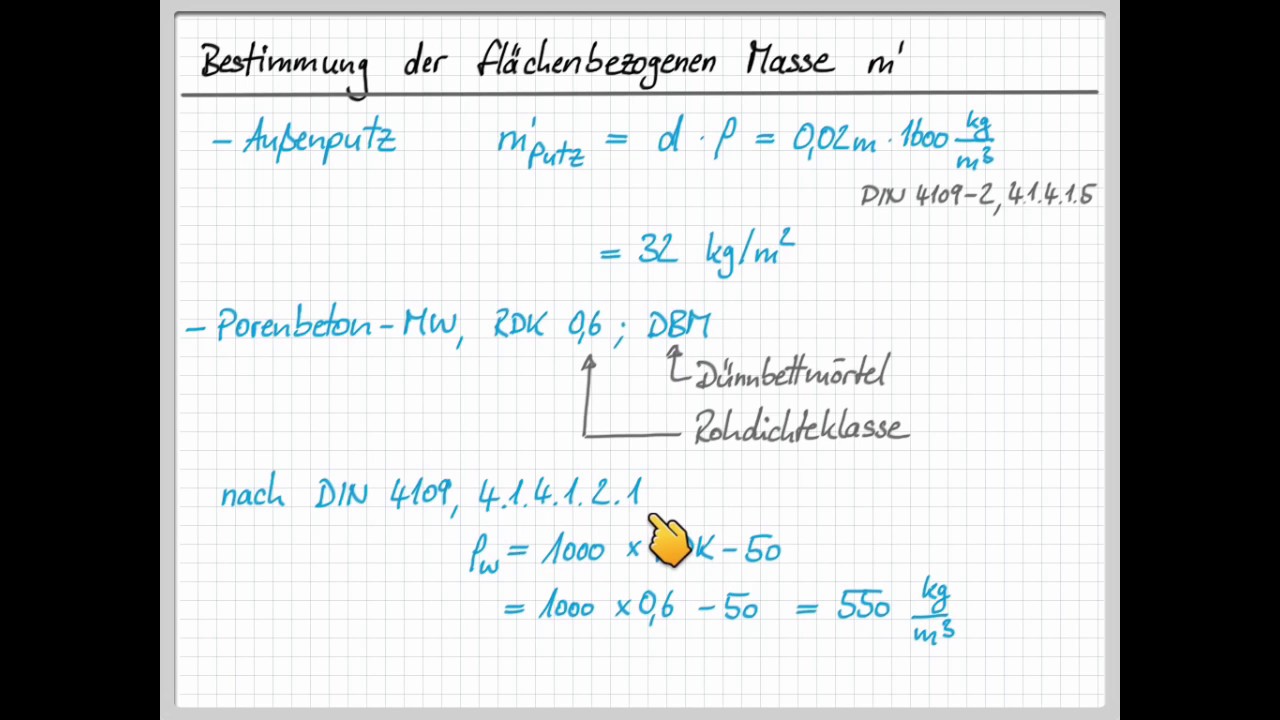 Bestimmung der flächenbezogenen Masse m'
- Außenputz m'Putz = d · ρ = 0,02m · 1600 kg/m³
DIN 4109-2, 4.1.4.1.5
= 32 kg/m²
- Porenbeton-MW, RDK 0,6 ; DBM
Dünnbettmörtel
Rohdichteklasse
nach DIN 4109, 4.1.4.1.2.1
ρw = 1000 × K - 50
= 1000 × 0,6 - 50 = 550 kg/m³